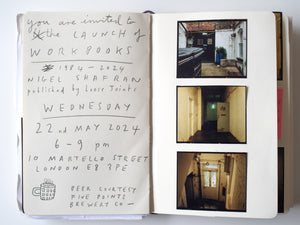 you are invited to
the LAUNCH of
WORKBOOKS
1984 - 2024
NIGEL SHAFRAN
published by Loose Joints
WEDNESDAY
22nd MAY 2024
6 - 9 pm
10 MARTELLO STREET
LONDON E8 3PE
BEER COURTESY
FIVE POINTS
BREWERY CO —